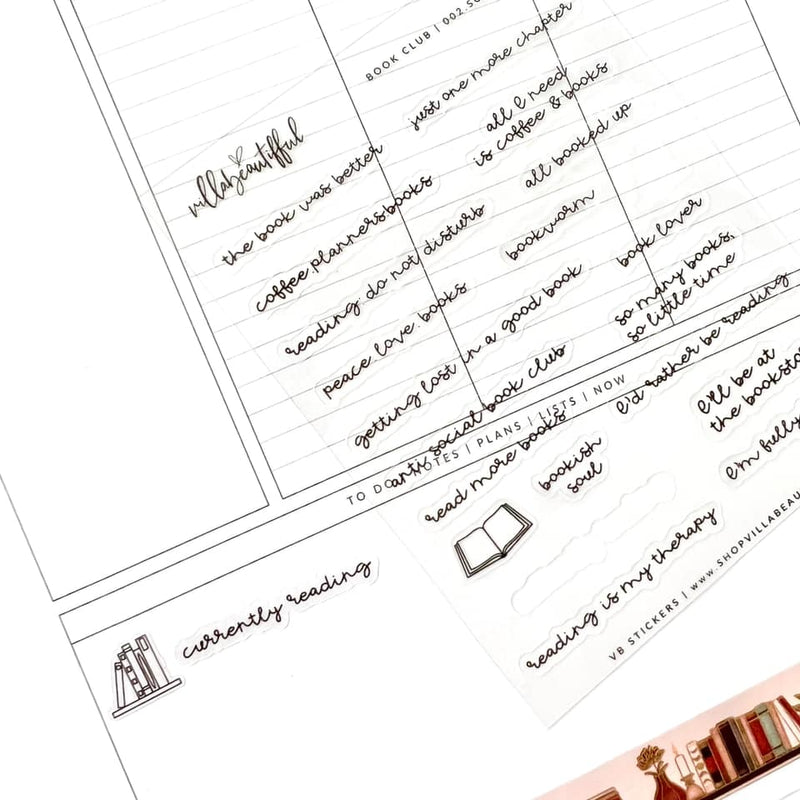 BOOK CLUB | 002.
villabeautifful
just one more chapter
all I need
is coffee & books
the book was better
all booked up
coffee.planners.books
book lover
reading. do not disturb
bookworm
so many books,
so little time
peace. love. books
getting lost in a good book
I'd rather be reading
anti social book club
I'll be at
the bookstore
TO DO | NOTES | PLANS | LISTS | NOW
read more books
bookish
soul
I'm fully
reading is my therapy
VB STICKERS | www.SHOPVILLABEAU
currently reading